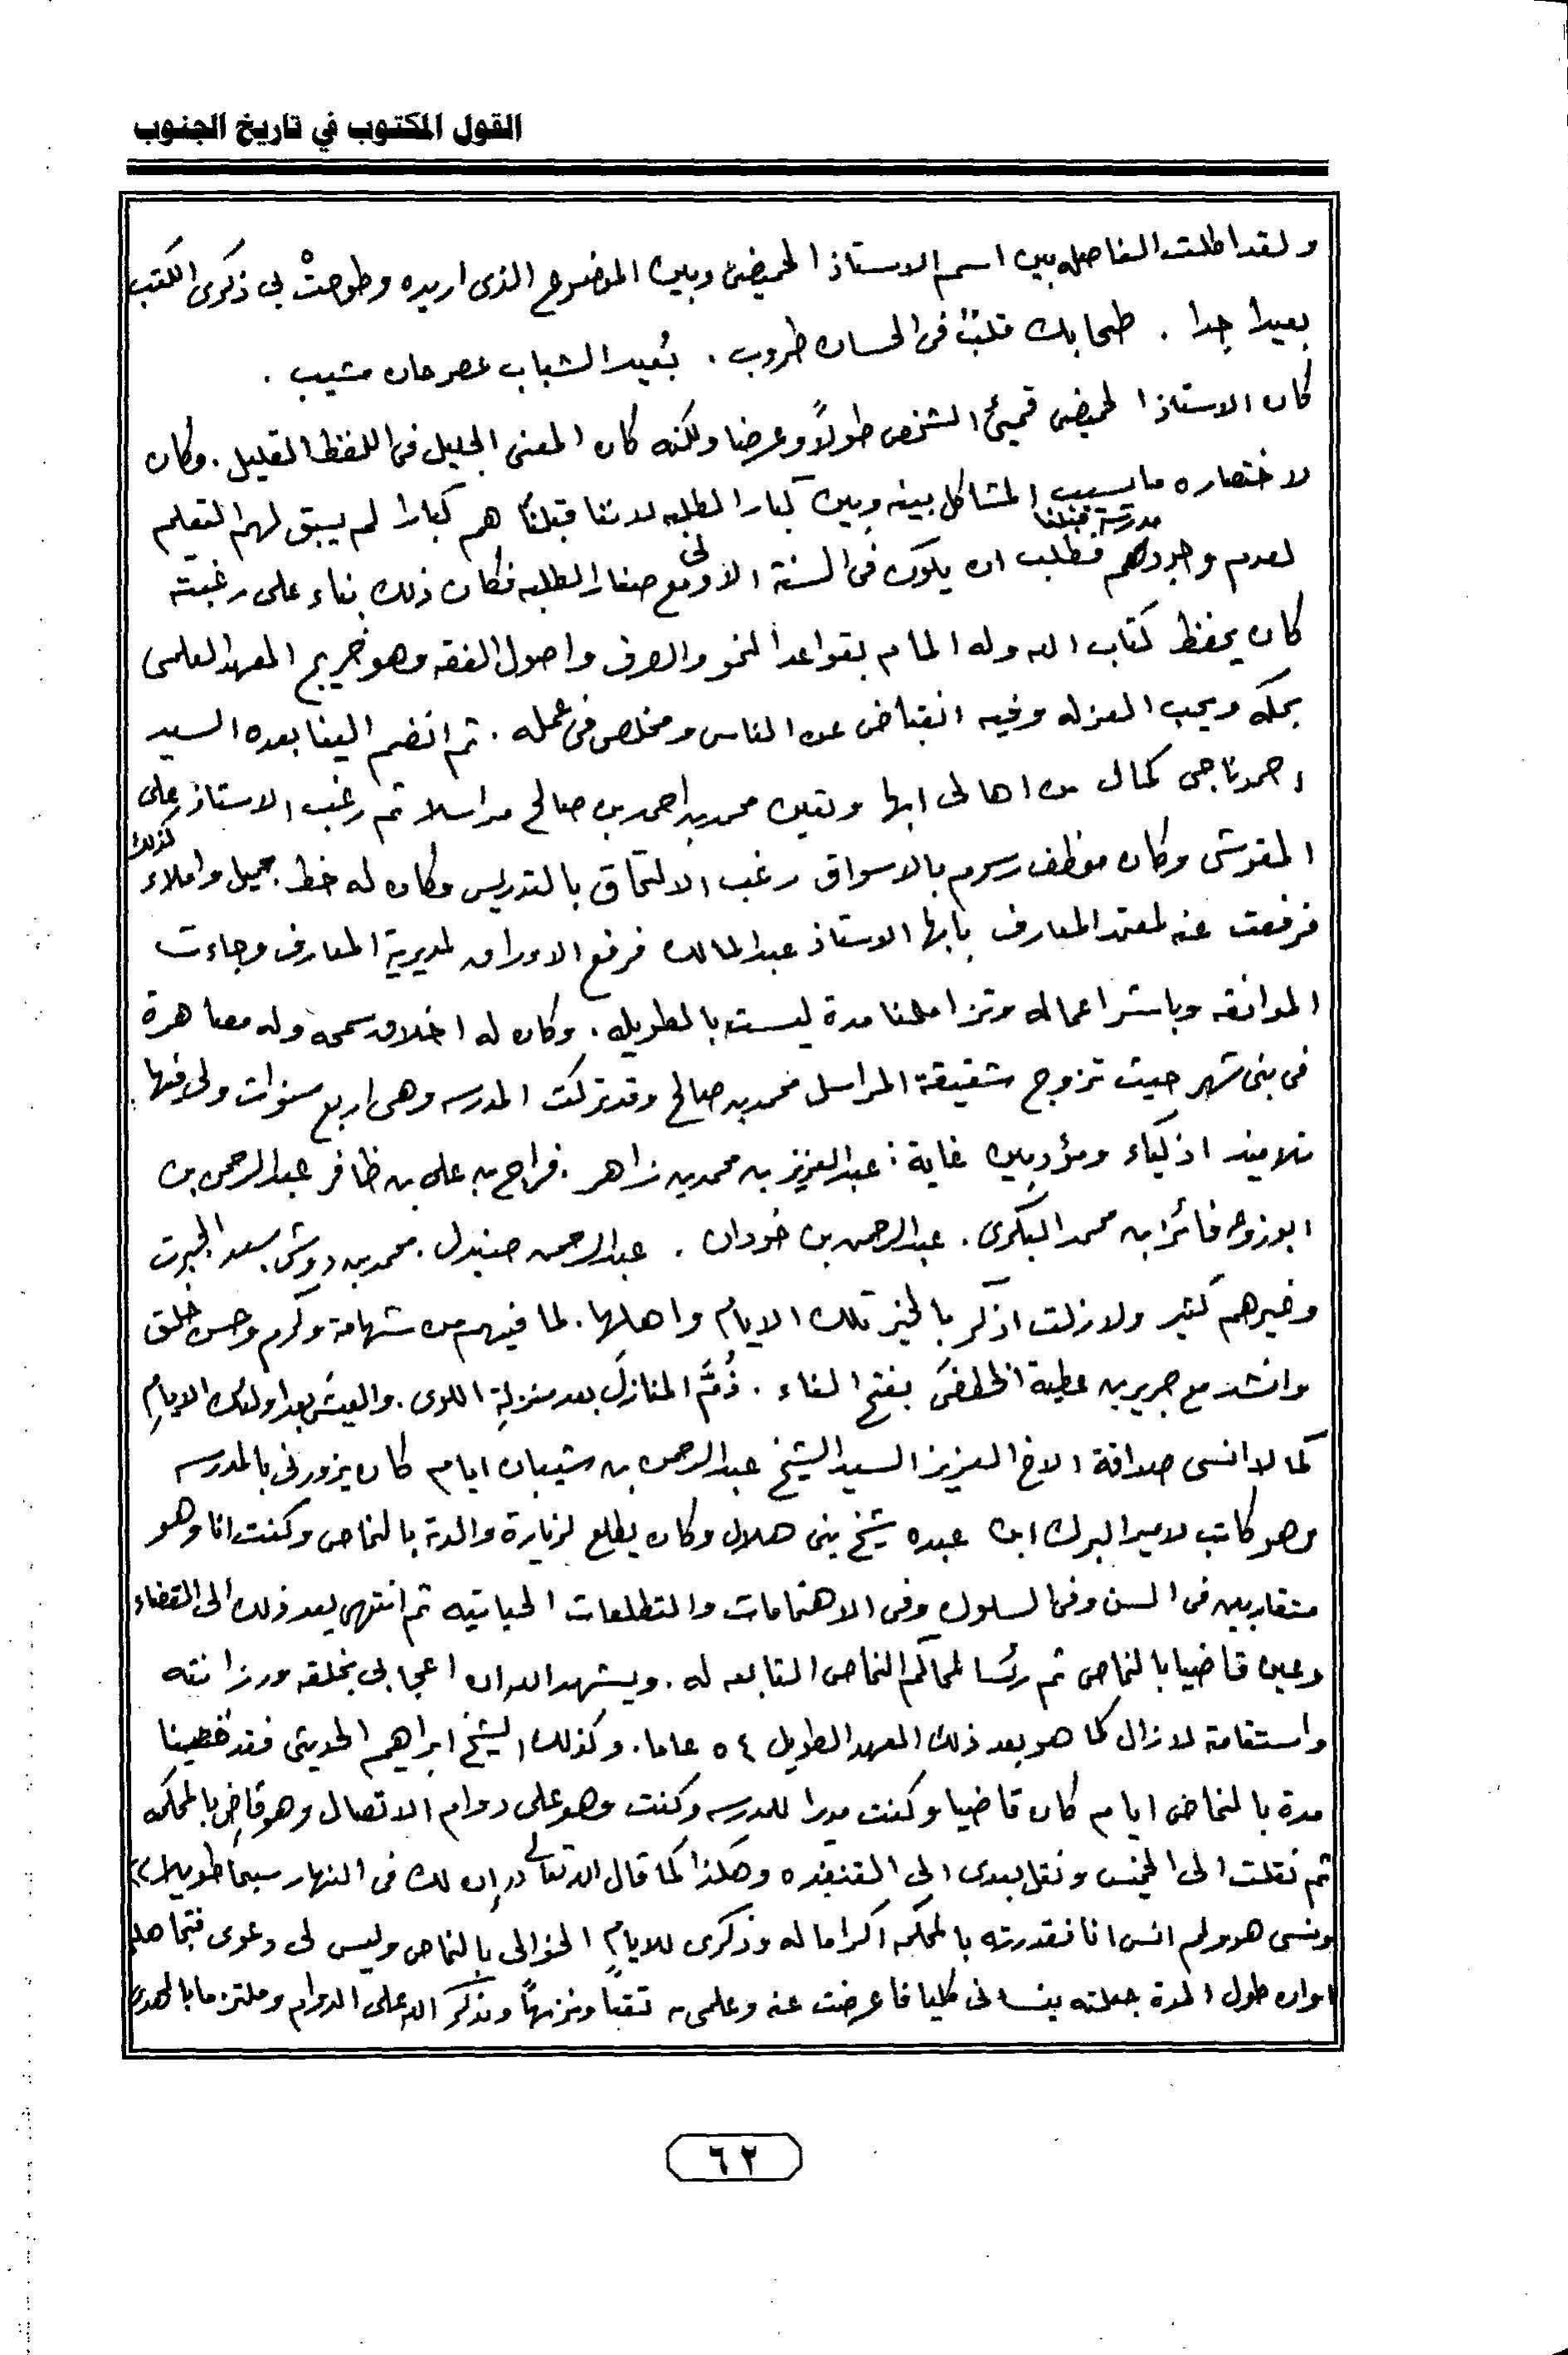 القول المكتوب في تاريخ الجنوب
ولقد اطلت الفاصله بين اسم الاستاذ الحميضى وبين الموضوع الذى اريده وطوحتْ بى ذكرى الكتب
بعيدا جدا . طحا بك قلبٌ فى الحسان طروب . بُعيد الشباب عصر حان مشيب .
كان الاستاذ الحميضى قميئ الشخص طولاً وعرضا ولكنه كان المعنى الجليل فى اللفظ القليل . وكان
لاختصاره ما يسبب المشاكل بينه وبين كبار الطلبه لاننا قبلنا هم كبارا لم يسبق لهم التعليم
لعدم وجود مدرسة قبلنا فطلب ان يكون فى السنة الاولى مع صغار الطلبه فكان ذلك بناء على رغبته
كان يحفظ كتاب الله وله المام بقواعد النحو والصرف واصول الفقه وهو خريج المعهد العلمى
بمكه ويحب العزله وفيه انقباض عن الناس ومخلص فى عمله . ثم انضم الينا بعده السيد
احمد ناجى كمال من اهالى ابها وتعين محمد بن احمد بن صالح مراسلا ثم رغب الاستاذ على
المقرشى وكان موظف رسوم بالاسواق رغب الالتحاق بالتدريس وكان له خط جميل واملاء كذلك
فرفعت عنه لمعتمد المعارف بابها الاستاذ عبد المالك فرفع الاوراق لمديرية المعارف وجاءت
الموافقه وباشر اعماله وتزاملنا مدة ليست بالطويله . وكان له اخلاق سمحه وله مصاهرة
فى بنى شهر حيث تزوج شقيقة المراسل محمد بن صالح وقد تركت المدرسه وهى اربع سنوات ولى فيها
تلاميذ اذكياء ومؤدبين غاية : عبد العزيز بن محمد بن زاهر . فراج بن على بن ظافر عبد الرحمن بن
ابو زوه فائز ابن محمد البكرى . عبد الرحمن بن خودان . عبد الرحمن صنيدل . محمد بن دوش . سعد
وغيرهم كثير ولا زلت اذكر بالخير تلك الايام واهلها . لما فيهم من شهامة وكرم وحسن خلق
وانشد مع جرير بن عطية الخطفىَ بفتح الفاء . ذُمَّ المنازل بعد منزلةِ اللوى . والعيش بعد اولئك الايامِ
كما لا انسى صداقة الاخ العزيز السيد الشيخ عبد الرحمن بن شيبان ايام كان يزورنى بالمدرسه
وهو كاتب لامير البرك ابن عبده شيخ بنى هلال وكان يطلع لزيارة والدة بالنماص وكنت انا وهو
متقاربين فى السن وفى السلوك وفى الاهتمامات والتطلعات الحياتيه ثم انتهى بعد ذلك الى القضاء
وعين قاضيا بالنماص ثم رئسا لمحاكم النماص التابعه له . ويشهد الله ان اعجابى بخلقه ورزانته
واستقامة لازال كما هو بعد ذلك العهد الطويل ٥٤ عاما . وكذلك الشيخ ابراهيم الحديثى فقد قضينا
مدة بالنماص ايام كان قاضيا وكنت مديرا للمدرسه وكنت وهو على دوام الاتصال وهو قاضِ بالمحكمه
ثم نقلت الى الخميس ونقل بعدى الى القنفذه وهكذا كما قال الله تعالى (( إن لك فى النهار سبحا طويلا ))
ونسى هو ولم انس انا فقد زرته بالمحكمه اكراما له وذكرى للايامِ الخوالى بالنماص وليس لى دعوى فتجاهل
او ان طول المدة جعلته ينسانى كليا فاعرضت عنه وعلمى به تقياً ونزيهاً ويذكر الله على الدوام وملتزما بالهدى
٦٢